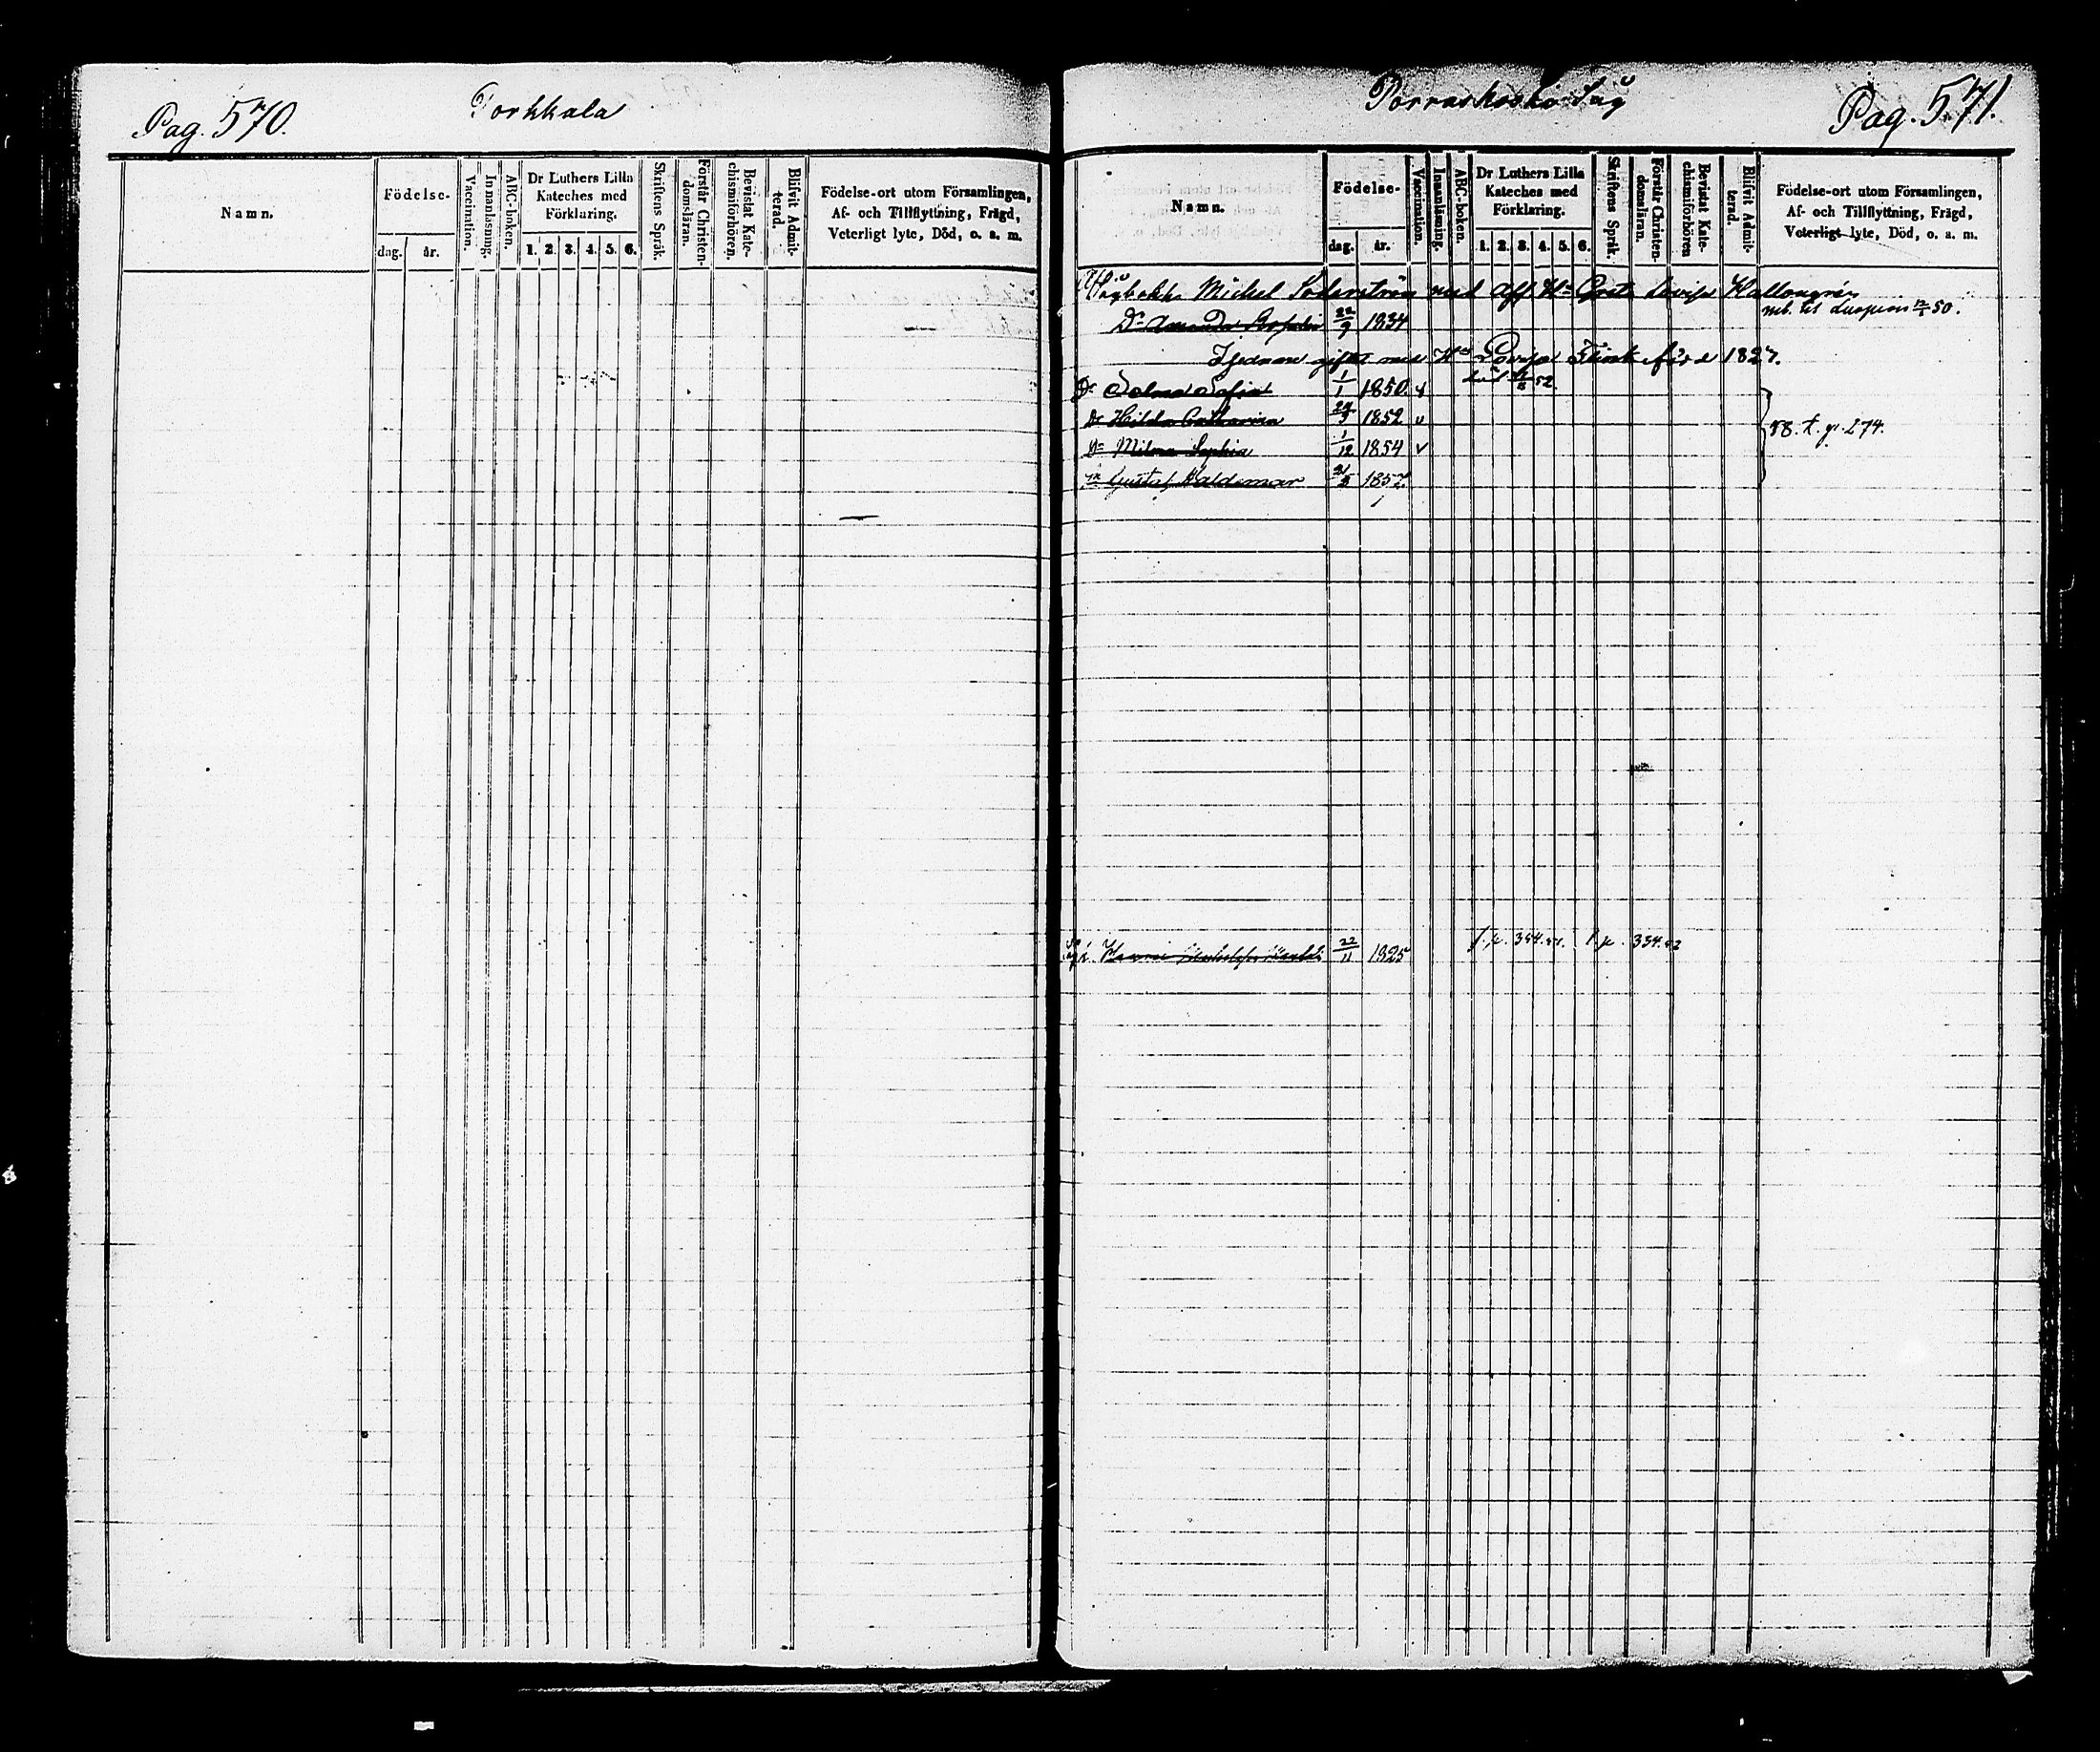 Pag. 570.
Torkkala
Namn.
Födelse-
dag.
år.
Vaccination.
Innanläsning.
ABC-boken.
Dr Luthers Lilla
Kateches med
Förklaring.
1. 2. 3. 4. 5. 6.
Skriftens Språk.
Förstår Christen-
domsläran.
Bevistat Kate-
chismiförhören.
Blifvit Admit-
terad.
Födelse-ort utom Församlingen,
Af- och Tillflyttning, Frägd,
Veterligt lyte, Död, o. s. m.
Porraskoski Såg
Pag. 571.
Namn.
Födelse-
dag.
år.
Vaccination.
Innanläsning.
ABC-boken.
Dr Luthers Lilla
Kateches med
Förklaring.
1. 2. 3. 4. 5. 6.
Skriftens Språk.
Förstår Christen-
domsläran.
Bevistat Kate-
chismiförhören
Blifvit Admit-
terad.
Födelse-ort utom Församlingen,
Af- och Tillflyttning, Frägd,
Veterligt lyte, Död, o. s. m.
Michel Söderström med Greta Lovisa
50.
Dr Amanda 22/9 1834
gift med Lovisa född 1827.
Dr Selma Sofia 1/1 1850. död 52.
Dr Hilda Catharina 1852 v
Dr Milma Sophia 1/12 1854 v
58. t. p. 274.
Gustaf Waldemar 1857.
22/11 1825